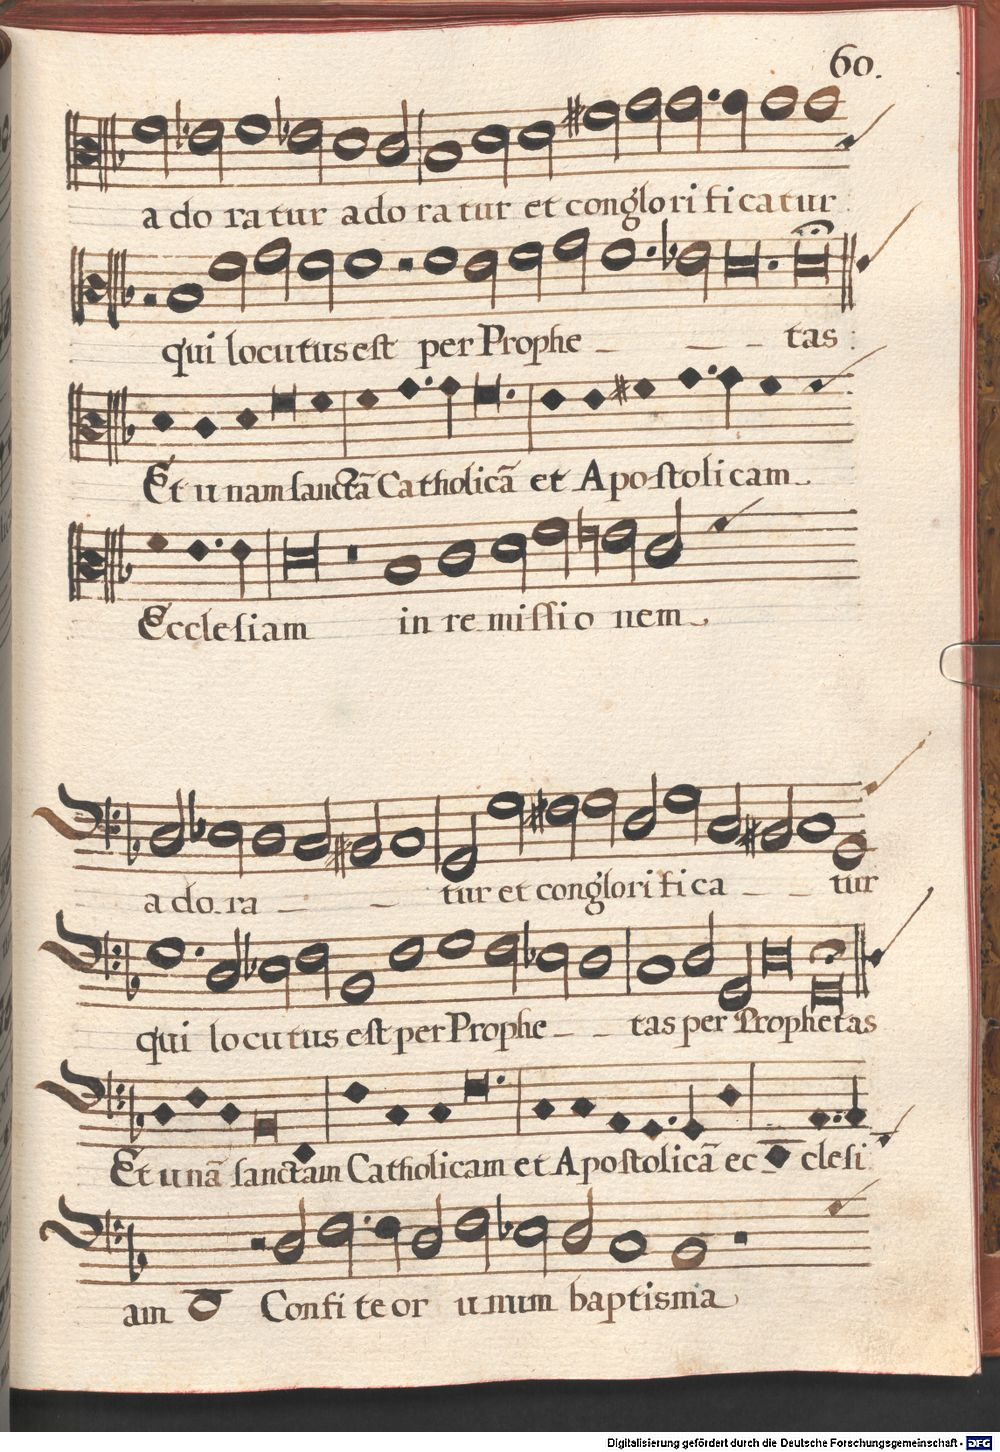 60.
a do ra tur a do ra tur et conglo ri fi ca tur
qui locutus est per Prophe _ _ _ tas :
Et unam sanctã Catholicã et Apostolicam
Ecclesiam in re missio nem
a do ra _ _ _ tur et conglo ri fi ca _ _ tur
qui locutus est per Prophe _ _ tas per Prophetas
Et unã sanctam Catholicam et Apostolicã ec clesi
am Confiteor unum baptisma
Digitalisierung gefördert durch die Deutsche Forschungsgemeinschaft - DFG